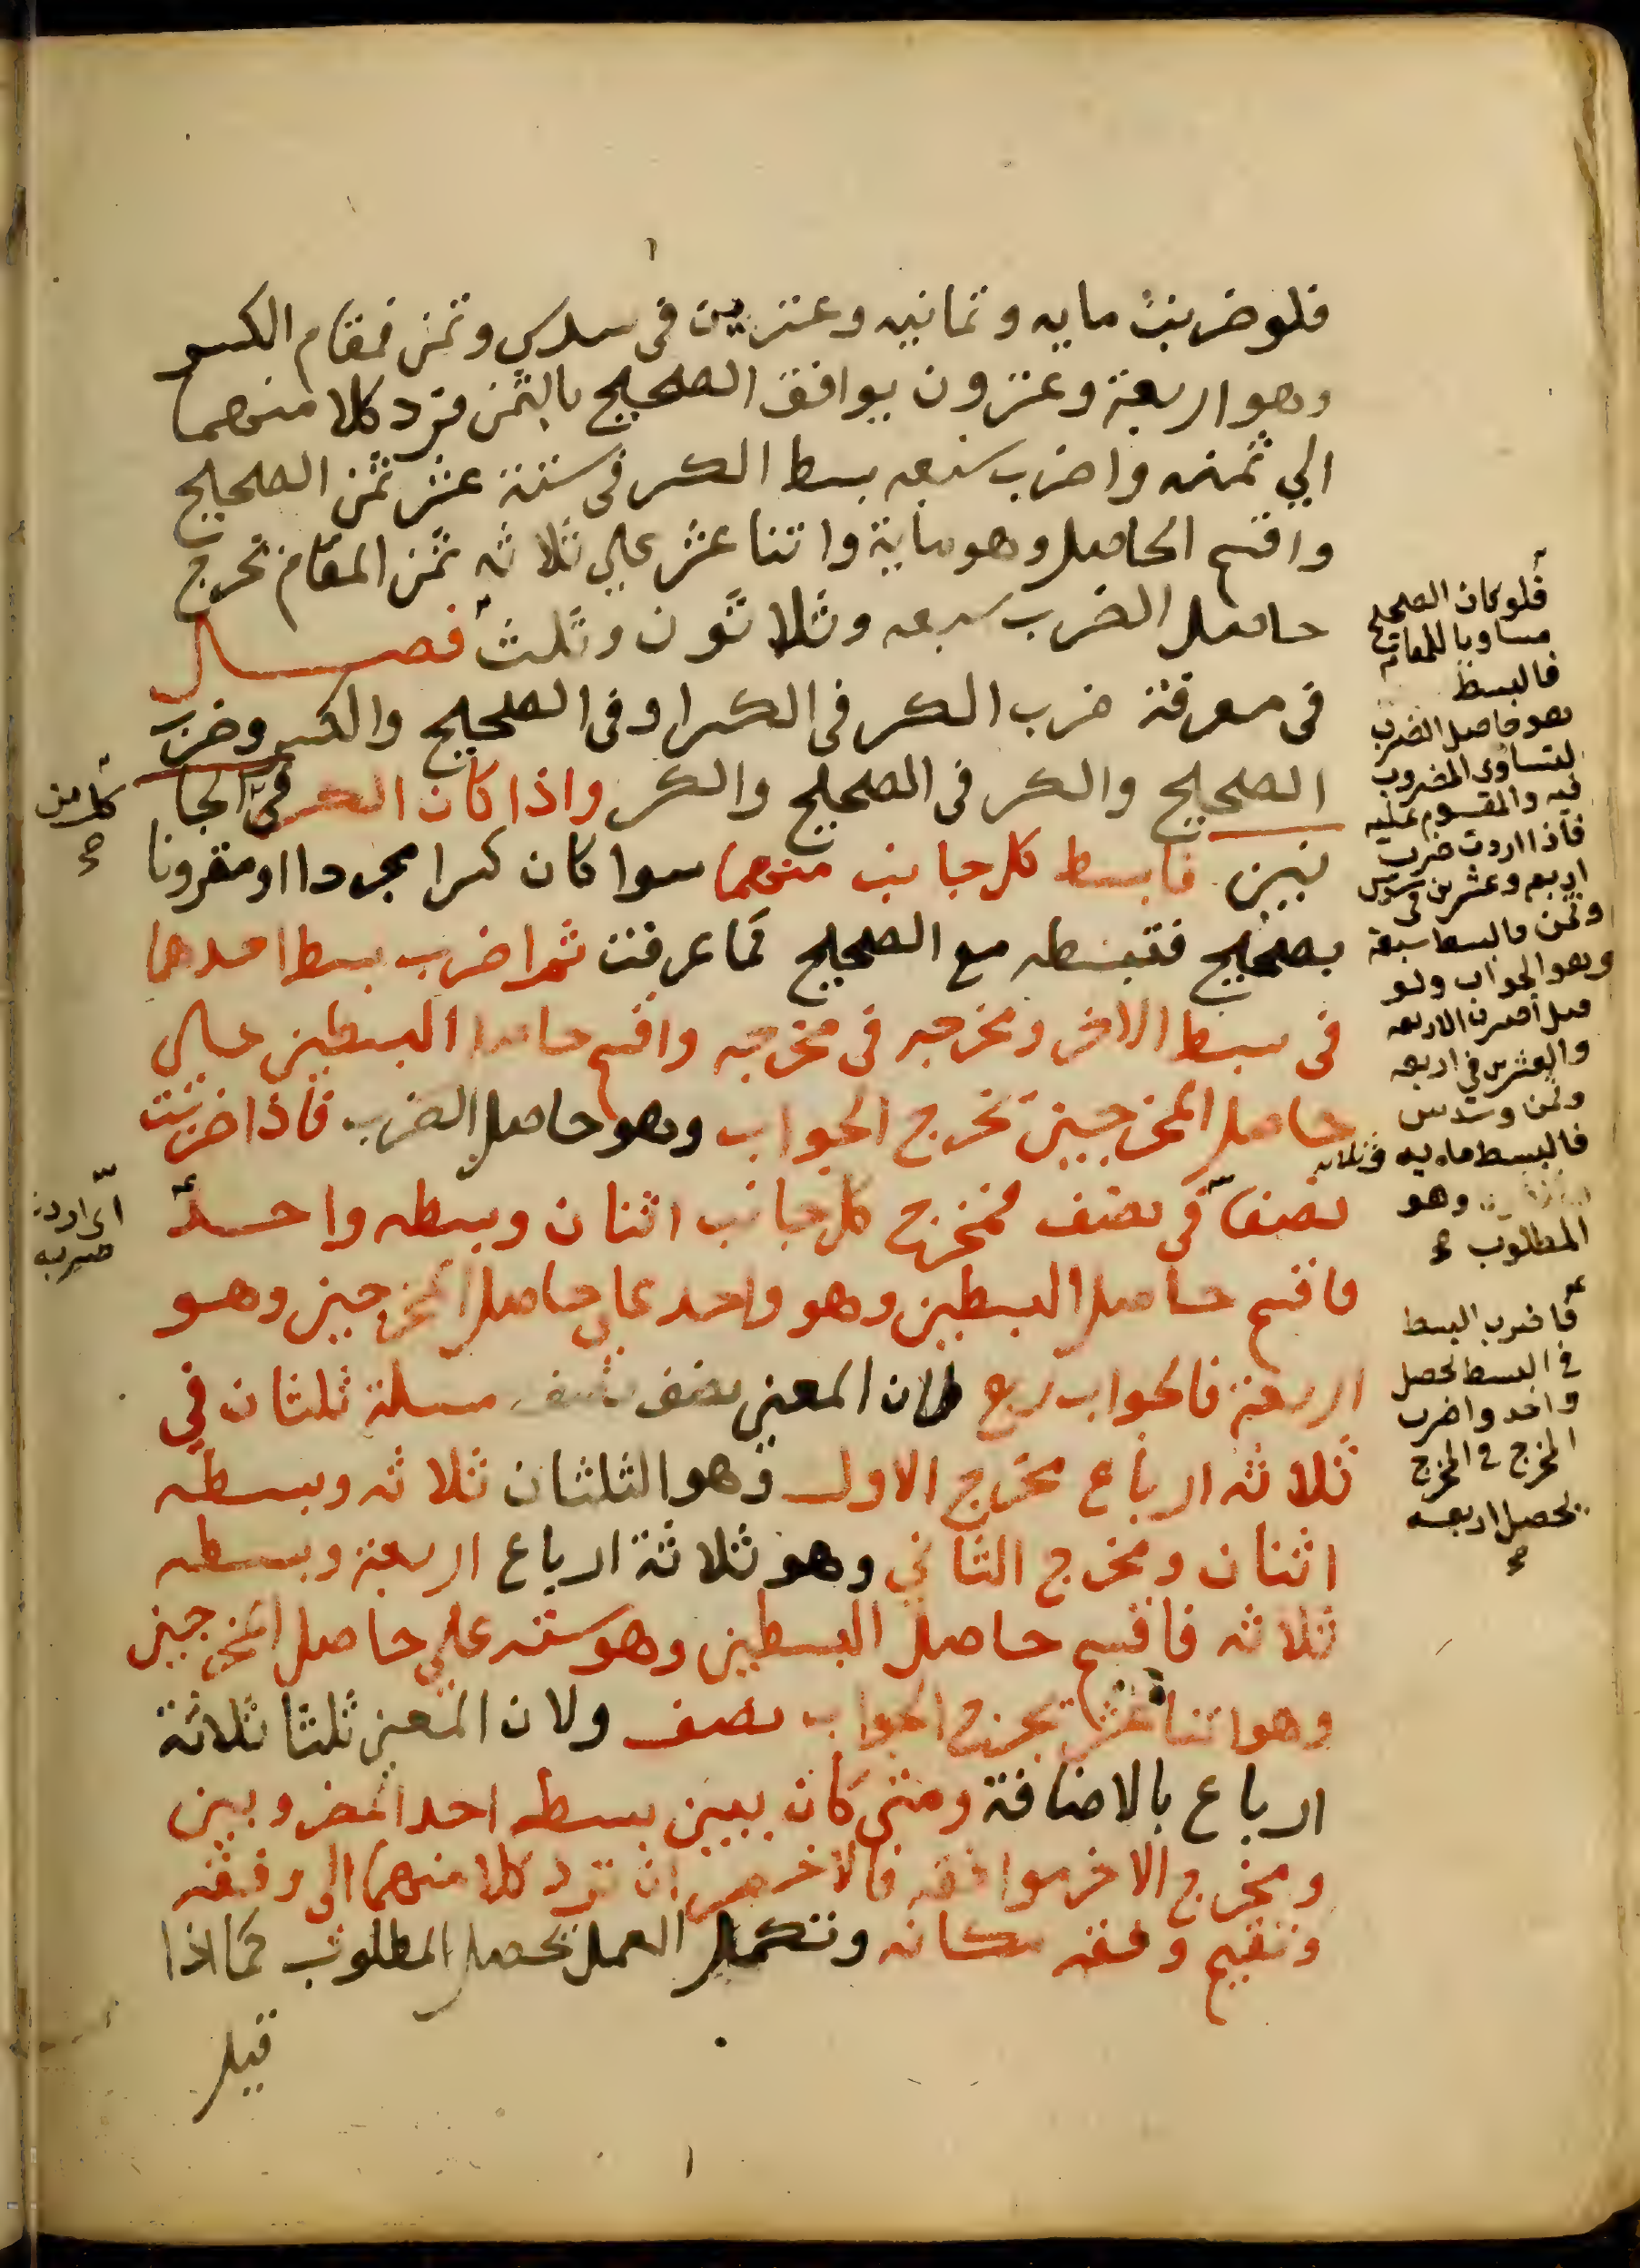 فلو ضربت مايه وثمانيه وعشرين فى سدس وثمن فمقام الكسر
وهو اربعة وعشرون يوافق الصحيح بالثمن فترد كلا منهما
الي ثمنه واضرب سبعه بسط الكسر فى ستة عشر ثمن الصحيح
واقسم الحاصل وهو ماية واثنا عشر علي ثلاثه ثمن المقام تخرج
حاصل الضرب سبعه وثلاثون وثلث فصل
فى معرفة ضرب الكسر فى الكسر او فى الصحيح والكسر وضرب
الصحيح والكسر فى الصحيح والكسر واذا كان الكسر فى الجا
نبين فابسط كل جانب منهما سوا كان كسرا مجردا او مقرونا
بصحيح فتبسطه مع الصحيح كما عرفت ثم اضرب بسط احدهما
فى بسط الاخر ومخرجه فى مخرجه واقسم حاصل البسطين على
حاصل المخرجين تخرج الجواب وهو حاصل الضرب فاذا ضربت
نصفا فى نصف فمخرج كل جانب اثنان وبسطه واحد
فاقسم حاصل البسطين وهو واحد علي حاصل المخرجين وهو
اربعة فالجواب ربع لان المعنى نصف نصف مسلة ثلثان في
ثلاثه ارباع مخرج الاول وهو الثلثان ثلاثه وبسطه
اثنان ومخرج الثاني وهو ثلاثة ارباع اربعة وبسطه
ثلاثه فاقسم حاصل البسطين وهو سته علي حاصل المخرجين
وهو اثنا عشر يخرج الجواب نصف ولان المعنى ثلثا ثلاثة
ارباع بالاضافة ومتى كان بين بسط احد المضروبين
ومخرج الاخر موافقه فالاخصر ان ترد كلا منهما الى وفقه
وتقيم وفقه مكانه وتكمل العمل يحصل المطلوب كما اذا
قيل
فلو كان الصحيح
مساويا للمقام
فالبسط
هو حاصل الضرب
لتساوى المضروب
فيه والمقسوم عليه
فاذا اردت ضرب
اربع وعشرين فى سدس
وثمن فالبسط سبعة
وهو الجواب ولو
قيل اضرب الاربعه
والعشرين في اربعه
وثمن وسدس
فالبسط مايه وثلاثه
وهو
المطلوب
فاضرب البسط
في البسط يحصل
واحد واضرب
المخرج فى المخرج
يحصل اربعه
كل من
اى اردت
ضربه